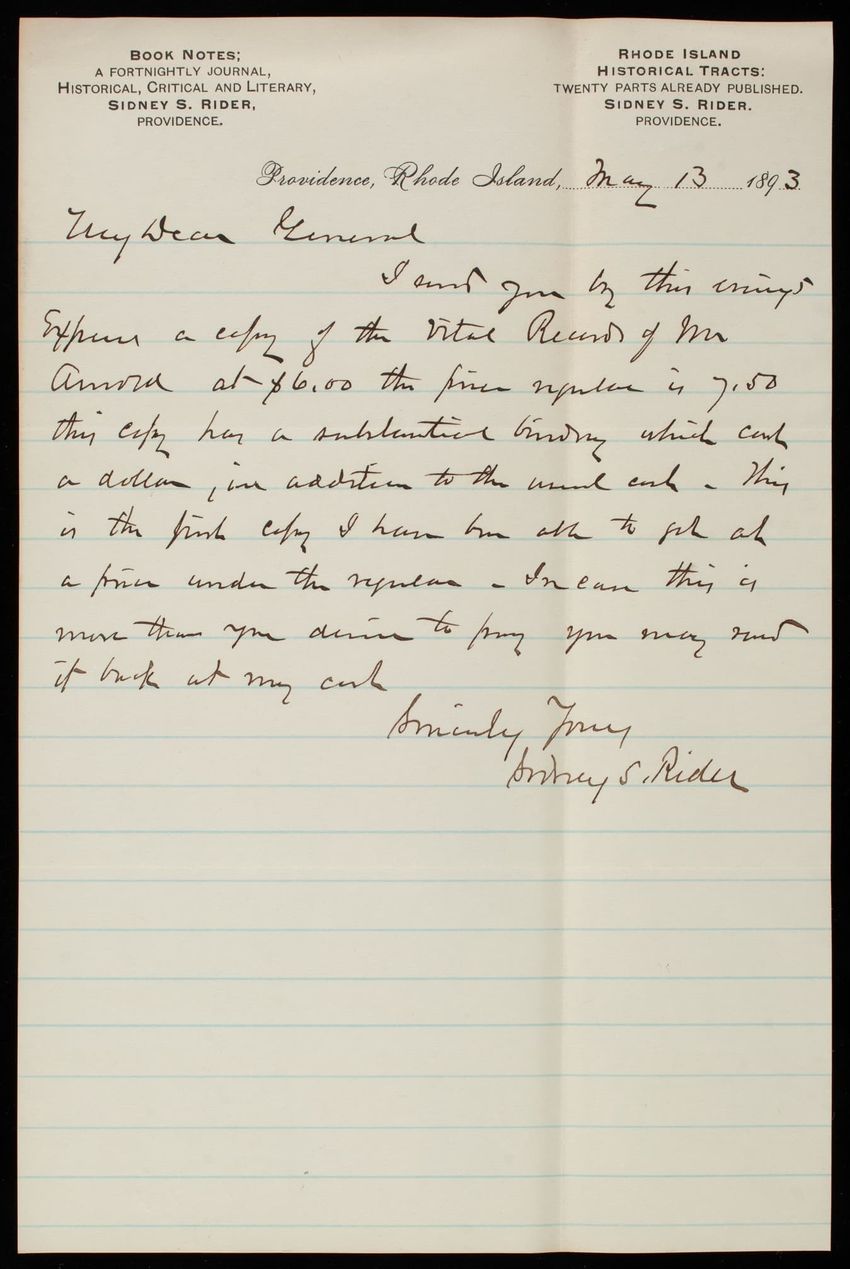 BOOK NOTES;
A FORTNIGHTLY JOURNAL,
HISTORICAL, CRITICAL AND LITERARY,
SIDNEY S. RIDER,
PROVIDENCE.
RHODE ISLAND
HISTORICAL TRACTS:
TWENTY PARTS ALREADY PUBLISHED.
SIDNEY S. RIDER.
PROVIDENCE.
Providence, Rhode Island, May 13 1893
My Dear General
I send you by this evenings
Express a copy of the Vital Records of Mr
Arnold at $6.00 the price regular is 7.50
this copy has a substantial binding which cost
a dollar, in addition to the usual cost - This
is the first copy I have been able to get at
a price under the regular - In case this is
more than you desire to pay you may send
it back at my cost
Sincerely Yours
Sidney S. Rider